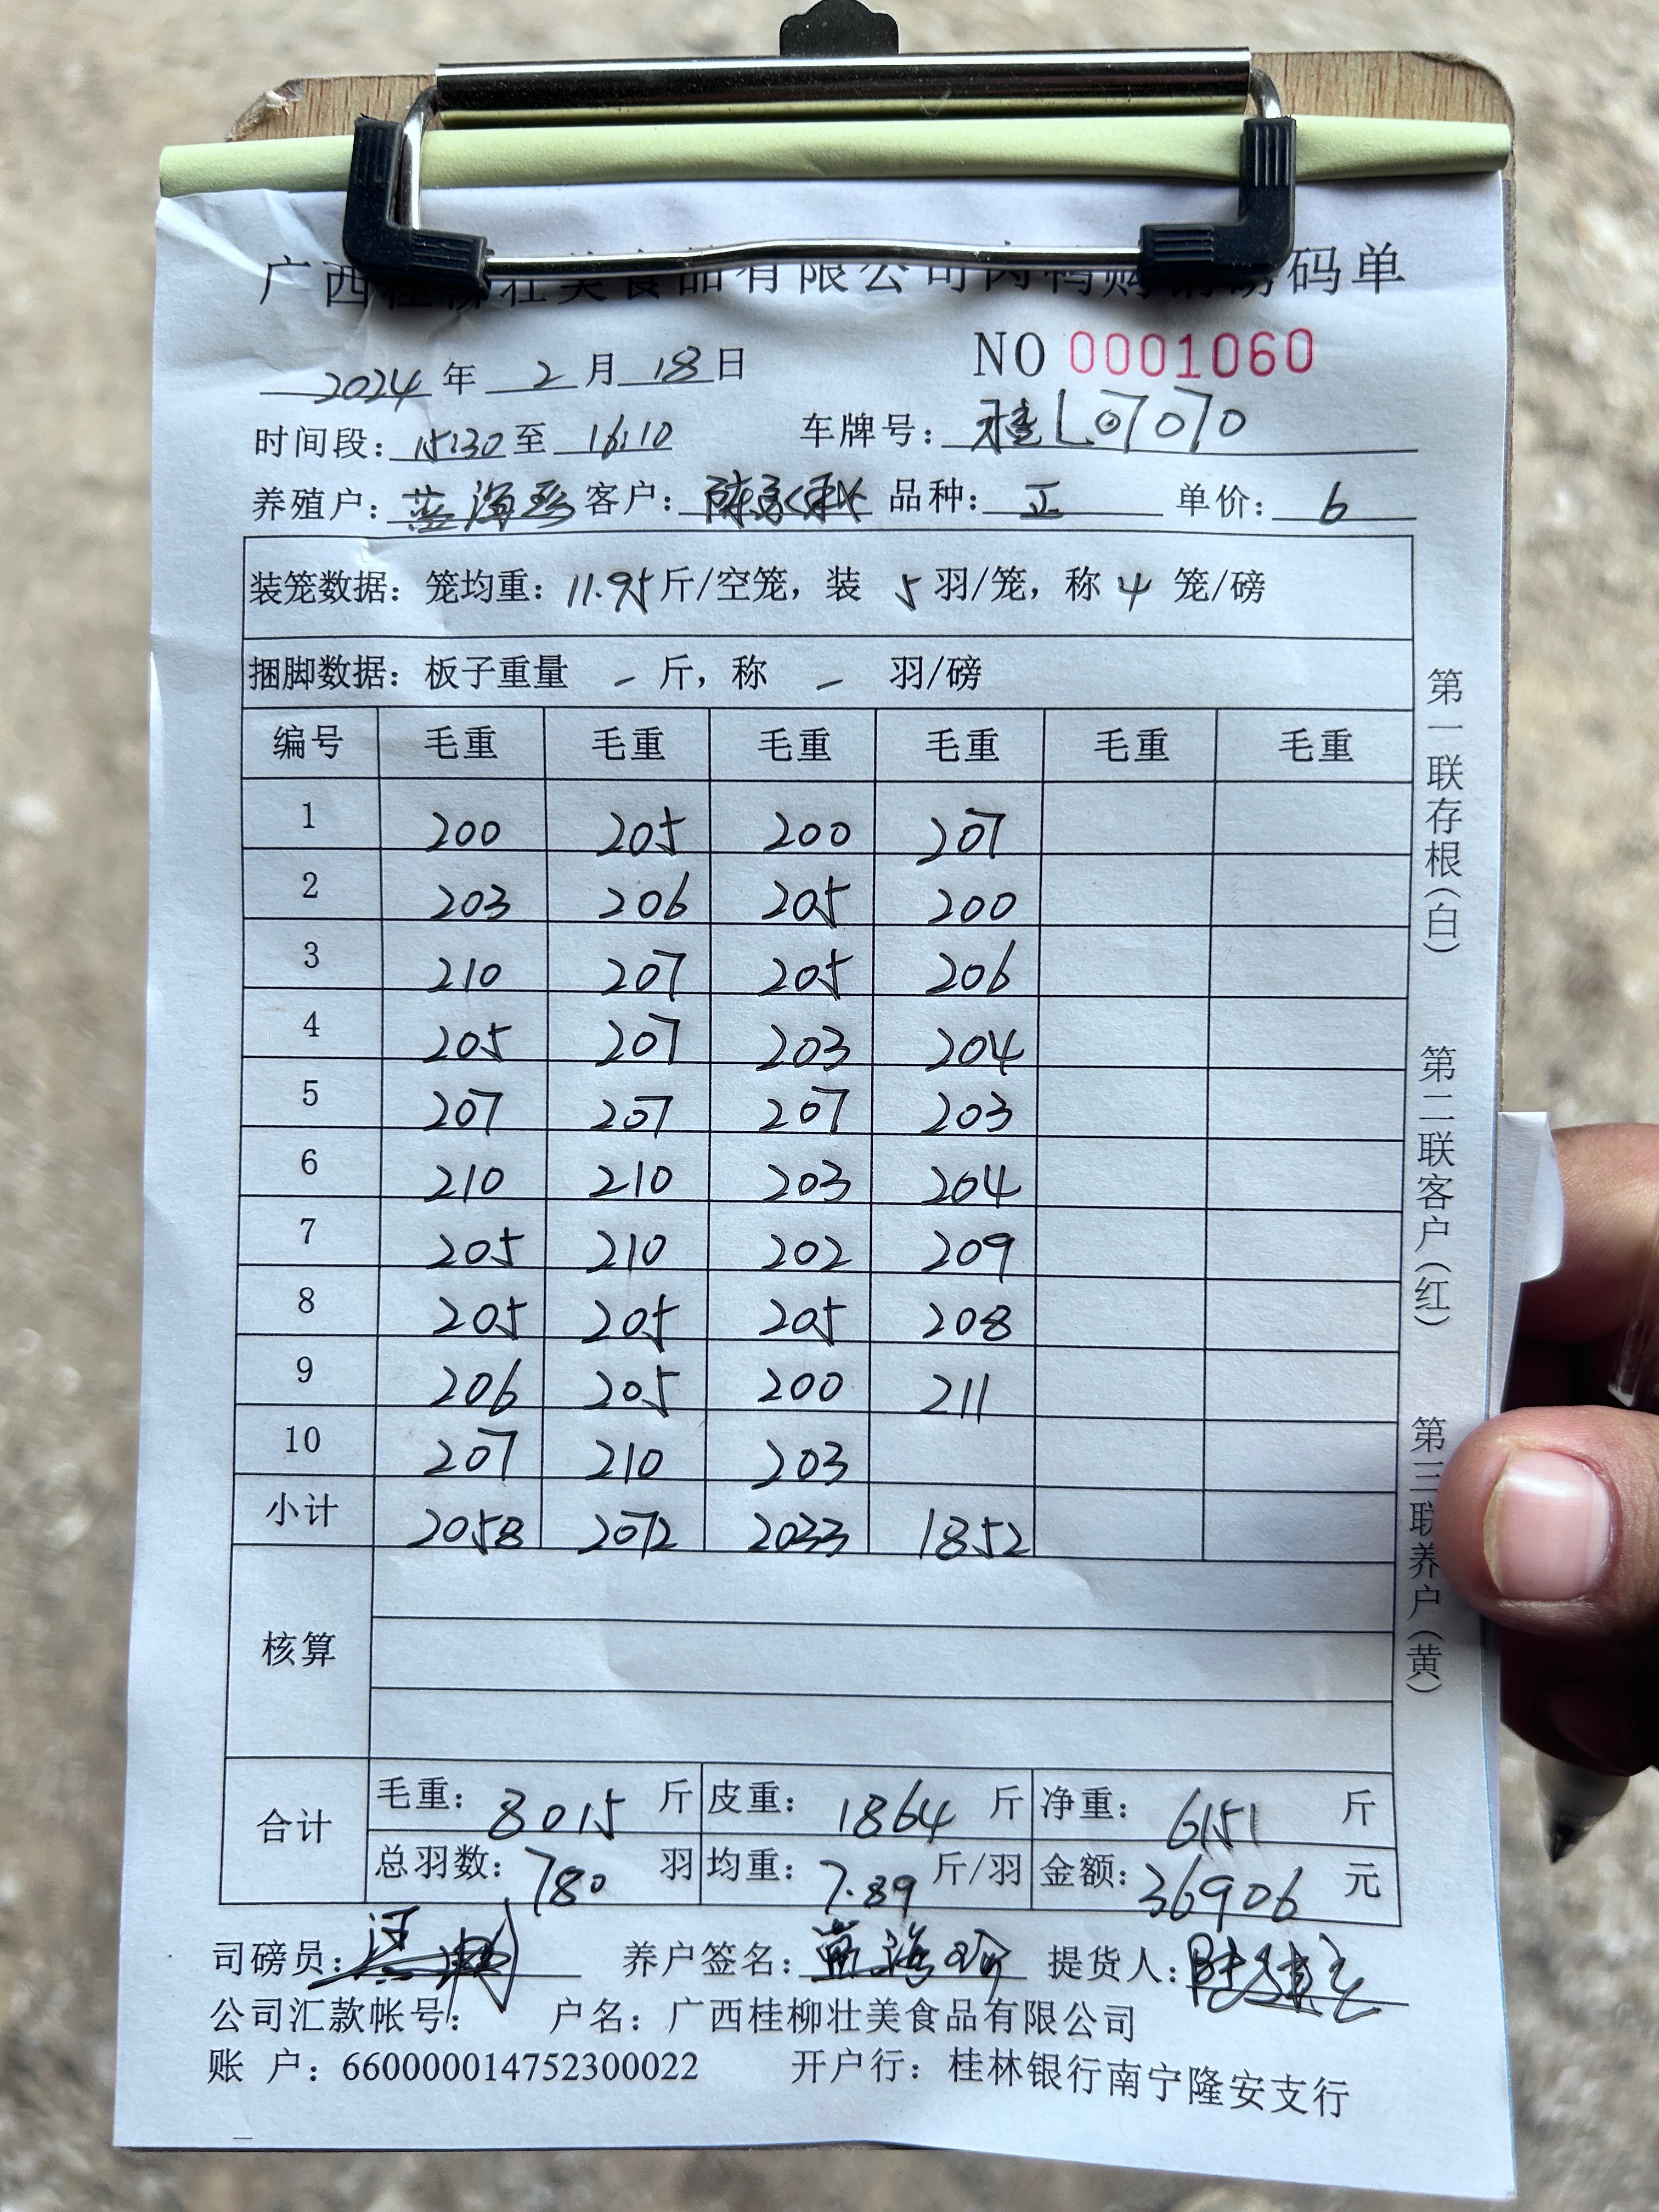 广西桂柳壮美食品有限公司肉鸭购销磅码单
NO 0001060
2024 年 2 月 18 日
时间段: 15:30 至 16:10 车牌号: 桂L07070
养殖户: 蓝海珍 客户: 品种: 正 单价: 6
装笼数据: 笼均重: 11.95 斤/空笼, 装 5 羽/笼, 称 4 笼/磅
捆脚数据: 板子重量 - 斤, 称 - 羽/磅
编号 毛重 毛重 毛重 毛重 毛重 毛重
1 200 205 200 207
2 203 206 205 200
3 210 207 205 206
4 205 207 203 204
5 207 207 207 203
6 210 210 203 204
7 205 210 202 209
8 205 205 205 208
9 206 205 200 211
10 207 210 203
小计 2058 2072 2033 1852
核算
合计
毛重: 8015 斤 皮重: 1864 斤 净重: 6151 斤
总羽数: 780 羽 均重: 7.89 斤/羽 金额: 36906 元
司磅员: 养户签名: 提货人:
公司汇款帐号: 户名: 广西桂柳壮美食品有限公司
账 户: 660000014752300022 开户行: 桂林银行南宁隆安支行
第一联存根(白) 第二联客户(红) 第三联养户(黄)